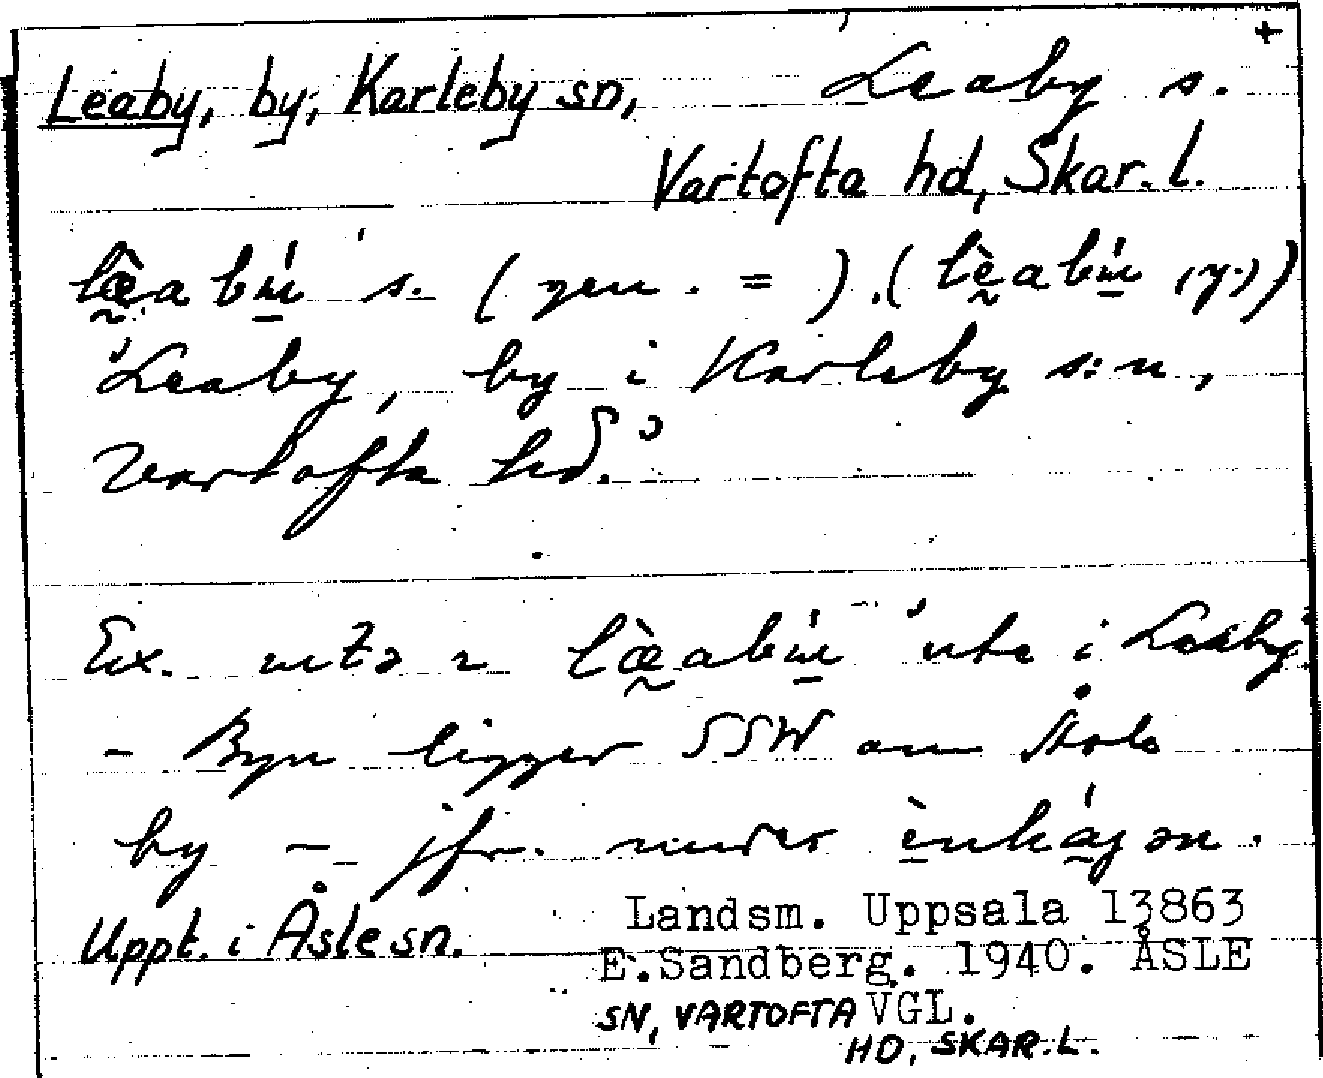 Leaby, by, Karleby sn, Leaby s.
Vartofta hd, Skar. l.
s. (gen. = ). (
'Leaby, by i Karleby s:n,
Vartofta hd.'
Ex. 'ute i Leaby'
- Byn ligger SSW om Åsle
by - jfr. under
Uppt. i Åsle sn. Landsm. Uppsala 13863
E.Sandberg. 1940. ÅSLE
SN, VARTOFTA VGL.
HD, SKAR. L.